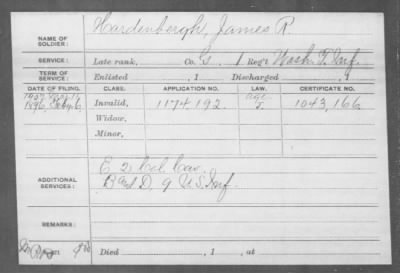 NAME OF SOLDIER: Hardenbergh, James R.
SERVICE: Late rank, Co. G, 1 Reg't Wash. T. Inf.
TERM OF SERVICE: Enlisted , 1 Discharged , 1
DATE OF FILING. CLASS. APPLICATION NO. LAW. CERTIFICATE NO.
1907
1896, Feby. 6 Invalid, 1174,192. 1043,166
Widow,
Minor,
ADDITIONAL SERVICES: E 2 Cal. Cav.
B and D, 9 U.S. Inf.
REMARKS:
Died , 1 , at